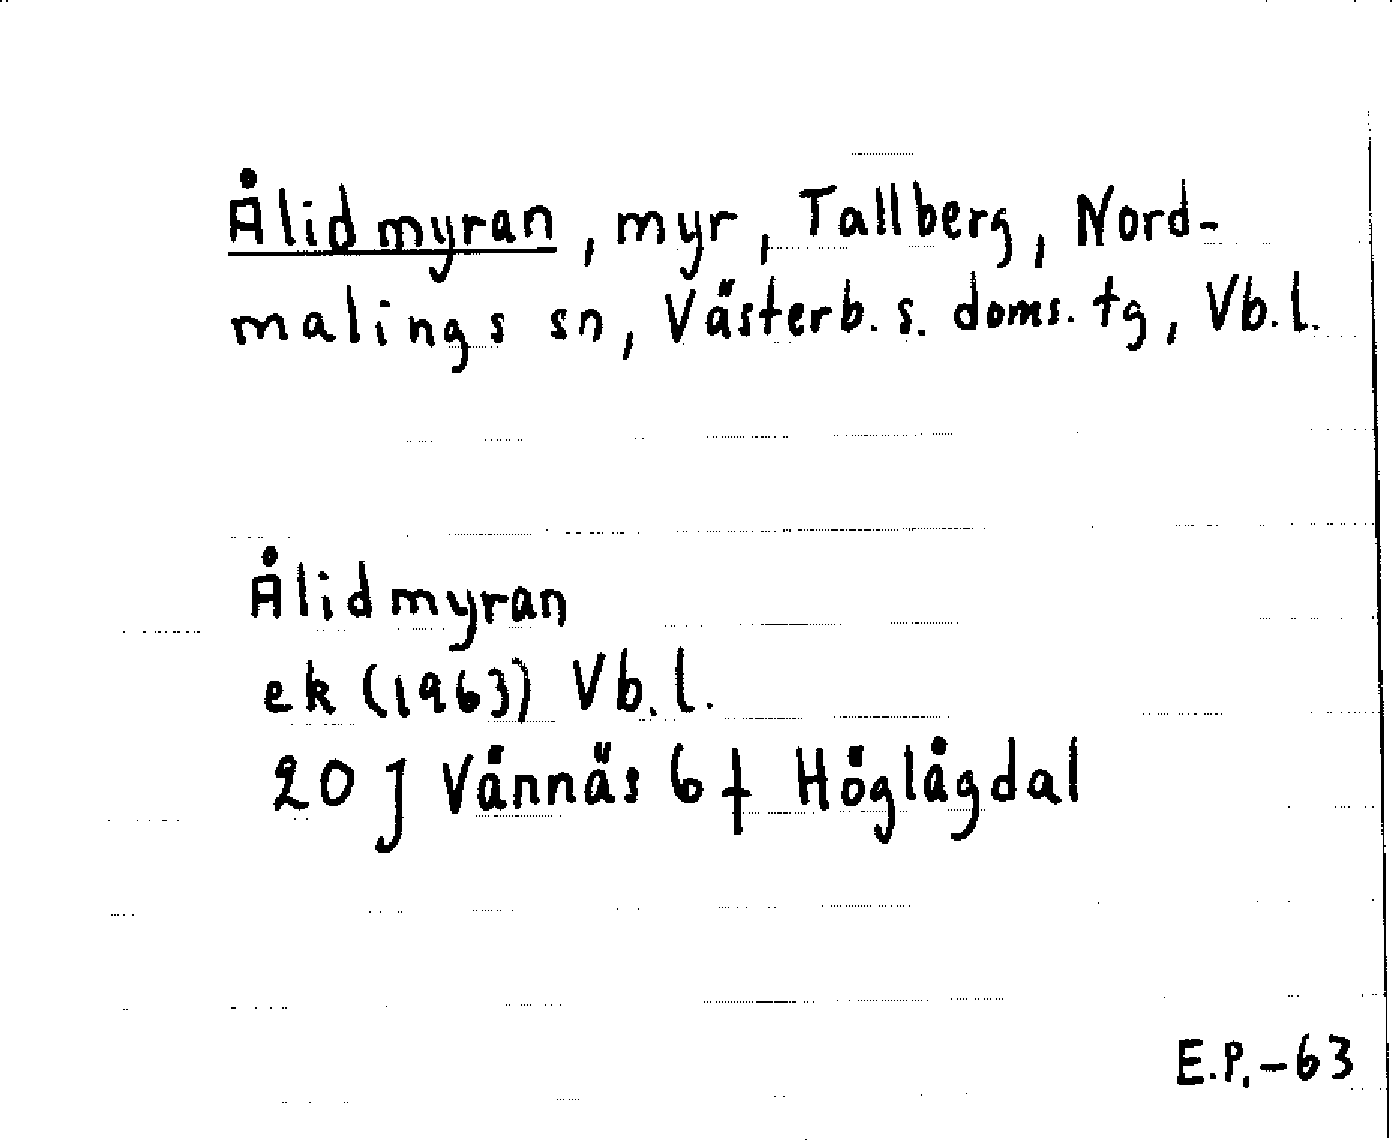 Ålidmyran, myr, Tallberg, Nord-
malings sn, Västerb. s. doms. tg, Vb.l.
Ålidmyran
ek (1963) Vb.l.
20 J Vännäs 6 f Höglågdal
E.P.-63